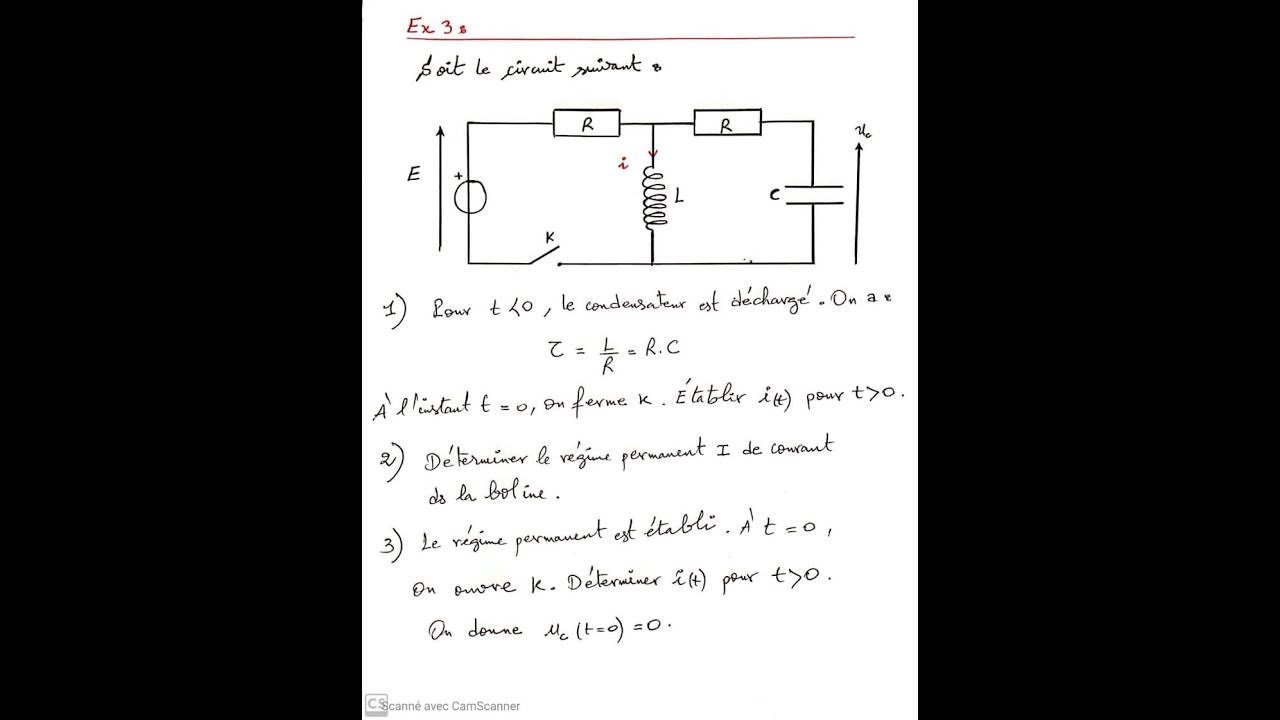 Ex 3 :
Soit le circuit suivant :
R
R
E
+
i
L
C
uc
K
1) Pour t<0, le condensateur est déchargé. On a :
τ = L/R = R.C
À l'instant t = 0, on ferme K. Établir i(t) pour t>0.
2) Déterminer le régime permanent I de courant
ds la bobine.
3) Le régime permanent est établi. À t = 0,
On ouvre K. Déterminer i(t) pour t>0.
On donne uc (t=0) = 0.
CS
Scanné avec CamScanner